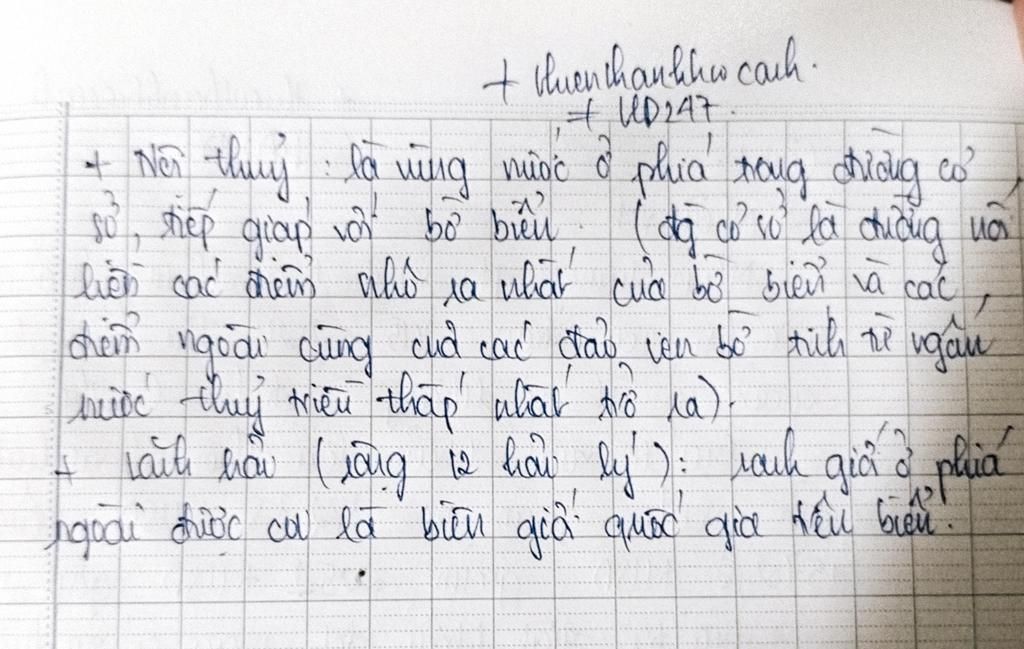 + thuenhanhhw cauh.
+ UD247.
+ Nội thuỷ: là vùng nước ở phía trong đường cơ
sở, tiếp giáp với bờ biển. (đg cơ sở là đường nối
liền các điểm nhô ra nhất của bờ biển và các
điểm ngoài cùng của các đảo ven bờ tính từ ngấn
nước thuỷ triều thấp nhất trở ra).
+ Lãnh hải (rộng 12 hải lý): ranh giới ở phía
ngoài được coi là biên giới quốc gia trên biển.